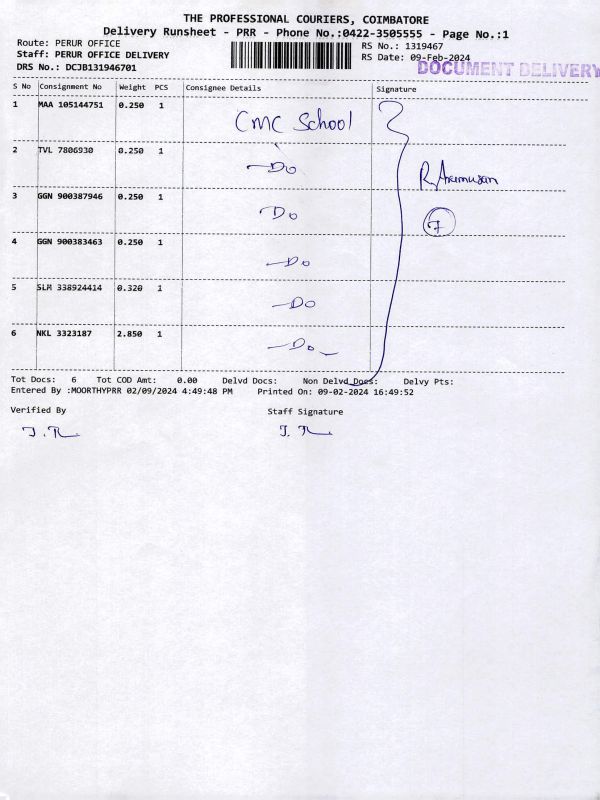 THE PROFESSIONAL COURIERS, COIMBATORE
Delivery Runsheet - PRR - Phone No.:0422-3505555 - Page No.:1
Route: PERUR OFFICE
Staff: PERUR OFFICE DELIVERY
DRS No.: DCJB131946701
RS No.: 1319467
RS Date: 09-Feb-2024
DOCUMENT DELIVERY
S No Consignment No Weight PCS Consignee Details Signature
1 MAA 105144751 0.250 1 CMC School
2 TVL 7806930 0.250 1 —Do
3 GGN 900387946 0.250 1 —Do
4 GGN 900383463 0.250 1 —Do
5 SLM 338924414 0.320 1 —Do
6 NKL 3323187 2.850 1 —Do—
Tot Docs: 6 Tot COD Amt: 0.00 Delvd Docs: Non Delvd Docs: Delvy Pts:
Entered By :MOORTHYPRR 02/09/2024 4:49:48 PM Printed On: 09-02-2024 16:49:52
Verified By Staff Signature